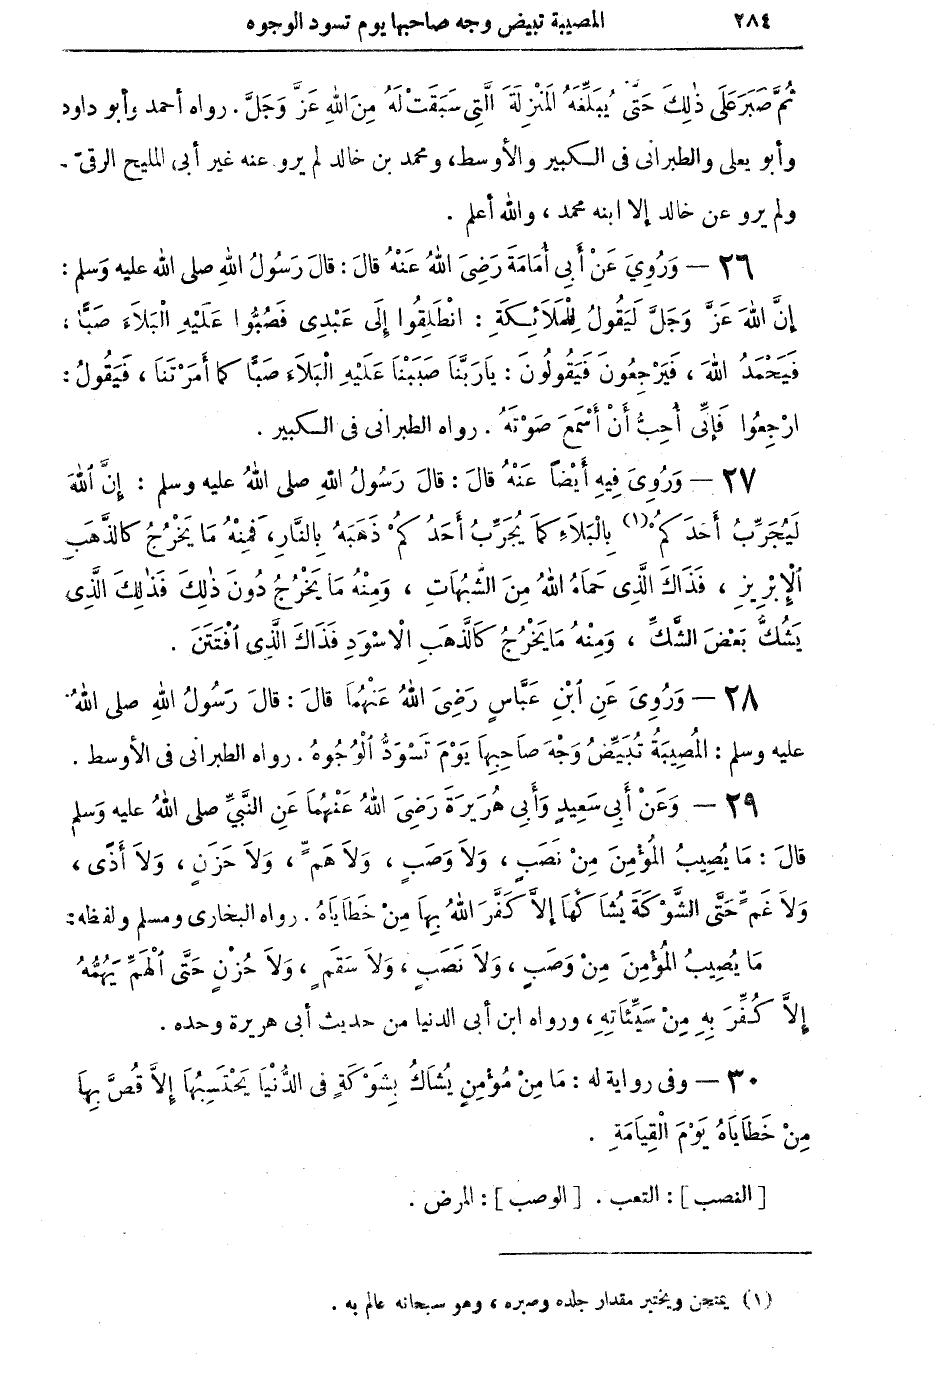 ٢٨٤ المصيبة تبيض وجه صاحبها يوم تسود الوجوه
ثُمَّ صَبَرَ عَلَى ذٰلِكَ حَتَّى يُبَلِّغَهُ الْمَنْزِلَةَ الَّتِي سَبَقَتْ لَهُ مِنَ اللهِ عَزَّ وَجَلَّ . رواه أحمد وأبو داود
وأبو يعلى والطبرانى فى الكبير والأوسط، ومحمد بن خالد لم يرو عنه غير أبى المليح الرقىّ -
ولم يرو عن خالد إلا ابنه محمد ، والله أعلم .
٢٦ — وَرُوِيَ عَنْ أَبِى أُمَامَةَ رَضِىَ اللهُ عَنْهُ قالَ : قالَ رَسُولُ اللهِ صلى الله عليه وَسلم :
إِنَّ اللهَ عَزَّ وَجَلَّ لَيَقُولُ لِلْمَلَائِكَةِ : انْطَلِقُوا إِلَى عَبْدِى فَصُبُّوا عَلَيْهِ الْبَلاَءَ صَبًّا ،
فَيَحْمَدُ اللهَ ، فَيَرْجِعُونَ فَيَقُولُونَ : يارَبَّنَا صَبَبْنَا عَلَيْهِ الْبَلاَءَ صَبًّا كما أَمَرْتَنَا ، فَيَقُولُ :
ارْجِعُوا فَإِنِّى أُحِبُّ أَنْ أَسْمَعَ صَوْتَهُ . رواه الطبرانى فى الكبير .
٢٧ — وَرُوِىَ فِيهِ أَيْضاً عَنْهُ قالَ : قالَ رَسُولُ اللهِ صلى اللهُ عليه وسلم : إِنَّ اللهَ
لَيُجَرِّبُ أَحَدَكُمْ (١) بِالْبَلاَءِ كَمَا يُجَرِّبُ أَحَدُكُمْ ذَهَبَهُ بِالنَّارِ، فَمِنْهُ مَا يَخْرُجُ كالذَّهَبِ
الْإِبْرِيزِ ، فَذَاكَ الَّذِى حَمَاهُ اللهُ مِنَ الشُّبُهَاتِ ، وَمِنْهُ مَا يَخْرُجُ دُونَ ذٰلِكَ فَذٰلِكَ الَّذِى
يَشُكُّ بَعْضَ الشَّكِّ ، وَمِنْهُ مَا يَخْرُجُ كَالذَّهَبِ الْاسْوَدِ فَذَاكَ الَّذِى افْتَتَنَ .
٢٨ — وَرُوِىَ عَنِ ابْنِ عَبَّاسٍ رَضِىَ اللهُ عَنْهُمَا قالَ : قالَ رَسُولُ اللهِ صلى اللهُ
عليه وسلم : الْمُصِيبَةُ تُبَيِّضُ وَجْهَ صَاحِبِهَا يَوْمَ تَسْوَدُّ الْوُجُوهُ . رواه الطبرانى فى الأوسط .
٢٩ — وَعَنْ أَبِى سَعِيدٍ وَأَبِى هُرَيْرَةَ رَضِىَ اللهُ عَنْهُمَا عَنِ النَّبِىِّ صلى اللهُ عليه وَسلم
قالَ : مَا يُصِيبُ الْمُؤْمِنَ مِنْ نَصَبٍ ، وَلاَ وَصَبٍ ، وَلاَ هَمٍّ ، وَلاَ حَزَنٍ ، وَلاَ أَذًى ،
وَلاَ غَمٍّ حَتَّى الشَّوْكَةَ يُشَاكُهَا إِلاَّ كَفَّرَ اللهُ بِهَا مِنْ خَطَايَاهُ . رواه البخارى ومسلم ولفظه :
مَا يُصِيبُ الْمُؤْمِنَ مِنْ وَصَبٍ ، وَلاَ نَصَبٍ ، وَلاَ سَقَمٍ ، وَلاَ حُزْنٍ حَتَّى الْهَمِّ يَهُمُّهُ
إِلاَّ كُفِّرَ بِهِ مِنْ سَيِّئَاتِهِ ، ورواه ابن أبى الدنيا من حديث أبى هريرة وحده .
٣٠ — وفى رواية له : مَا مِنْ مُؤْمِنٍ يُشَاكُ بِشَوْكَةٍ فى الدُّنْيَا يَحْتَسِبُهَا إِلاَّ قُصَّ بِهَا
مِنْ خَطَايَاهُ يَوْمَ الْقِيَامَةِ .
[ النصب ] : التعب . [ الوصب ] : المرض .
(١) يمتحن ويختبر مقدار جلده وصبره ، وهو سبحانه عالم به .